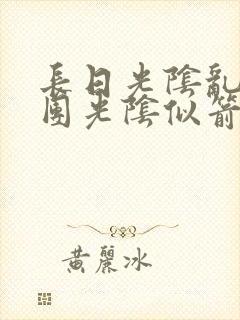 長日光陰亂
園光陰似箭
黃麗冰